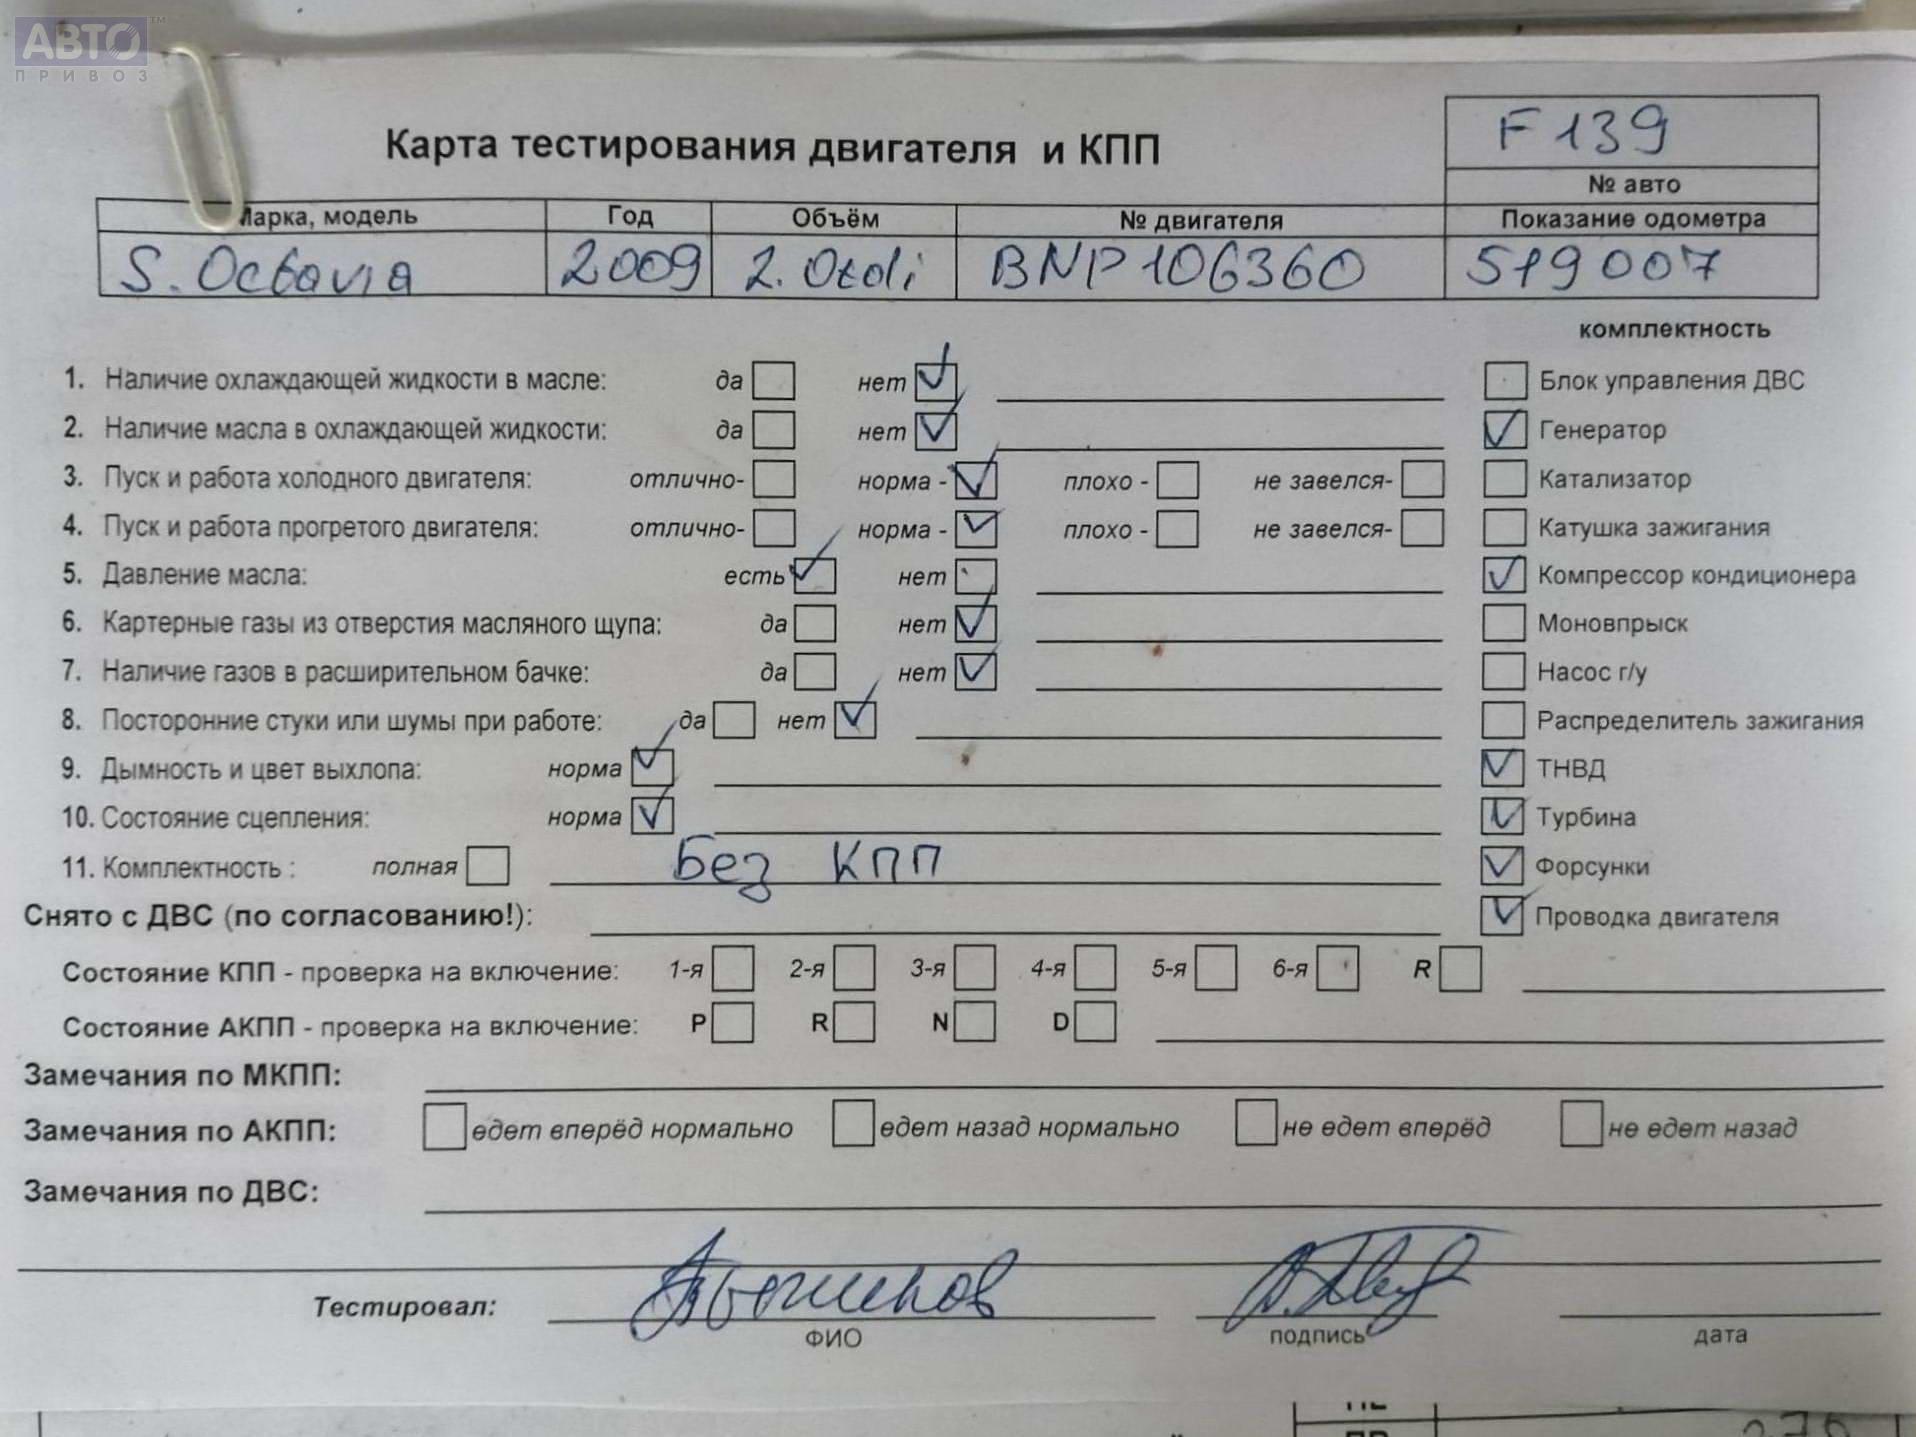 АВТО™
ПРИВОЗ
F139
Карта тестирования двигателя и КПП
№ авто
Марка, модель Год Объём № двигателя Показание одометра
S. Octavia 2009 2.0tdi BNP106360 519007
комплектность
1. Наличие охлаждающей жидкости в масле: да нет Блок управления ДВС
2. Наличие масла в охлаждающей жидкости: да нет Генератор
3. Пуск и работа холодного двигателя: отлично- норма - плохо - не завелся- Катализатор
4. Пуск и работа прогретого двигателя: отлично- норма - плохо - не завелся- Катушка зажигания
5. Давление масла: есть нет Компрессор кондиционера
6. Картерные газы из отверстия масляного щупа: да нет Моновпрыск
7. Наличие газов в расширительном бачке: да нет Насос г/у
8. Посторонние стуки или шумы при работе: да нет Распределитель зажигания
9. Дымность и цвет выхлопа: норма ТНВД
10. Состояние сцепления: норма Турбина
11. Комплектность : полная Без КПП Форсунки
Снято с ДВС (по согласованию!): Проводка двигателя
Состояние КПП - проверка на включение: 1-я 2-я 3-я 4-я 5-я 6-я R
Состояние АКПП - проверка на включение: P R N D
Замечания по МКПП:
Замечания по АКПП: едет вперёд нормально едет назад нормально не едет вперёд не едет назад
Замечания по ДВС:
Тестировал:
ФИО подпись дата